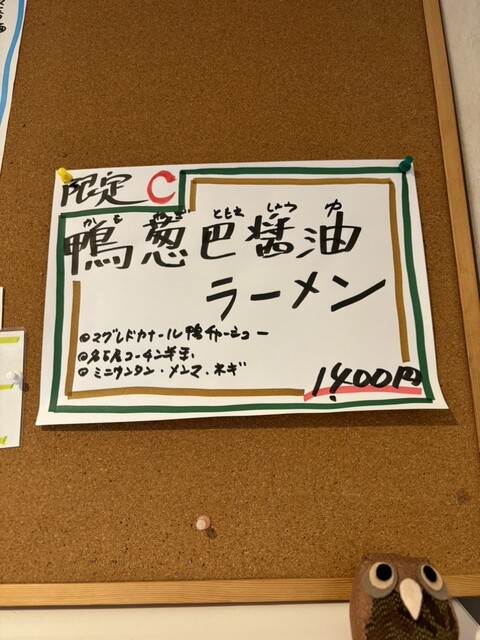 限定 C
かも ねぎ ともえ しょう ゆ
鴨葱巴醤油
ラーメン
◎マグレドカナール鴨チャーシュー
◎名古屋コーチン半玉
◎ミニワンタン・メンマ・ネギ
1,400円